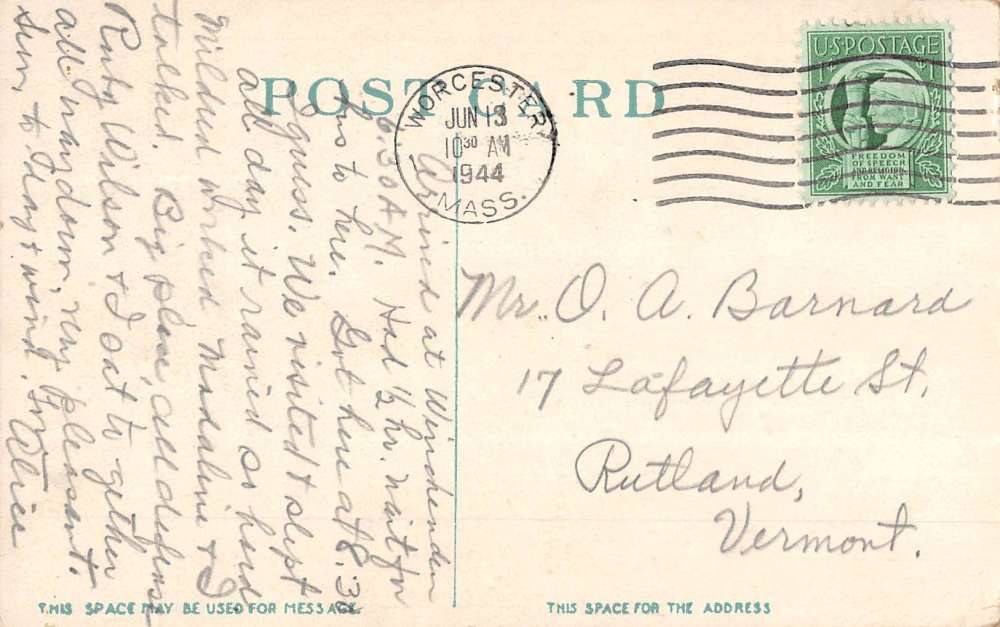 POST CARD
WORCESTER
JUN 13
10 30 AM
1944
MASS.
U.S. POSTAGE
1¢
FREEDOM
OF SPEECH
AND RELIGION,
FROM WANT
AND FEAR
Arrived at Winchendon
6.30 A.M. Had 1/2 hr. wait for
bus to here. Got here at 8.30
I guess. We visited & slept
all day, it rained so hard
Mildred worked Madaline & I
talked. Big place, all
Ruby Wilson & I sat to gether
all way down, very pleasant.
Sun, to day & wind. Alice
Mr. O. A. Barnard
17 Lafayette St.
Rutland,
Vermont.
THIS SPACE MAY BE USED FOR MESSAGE
THIS SPACE FOR THE ADDRESS